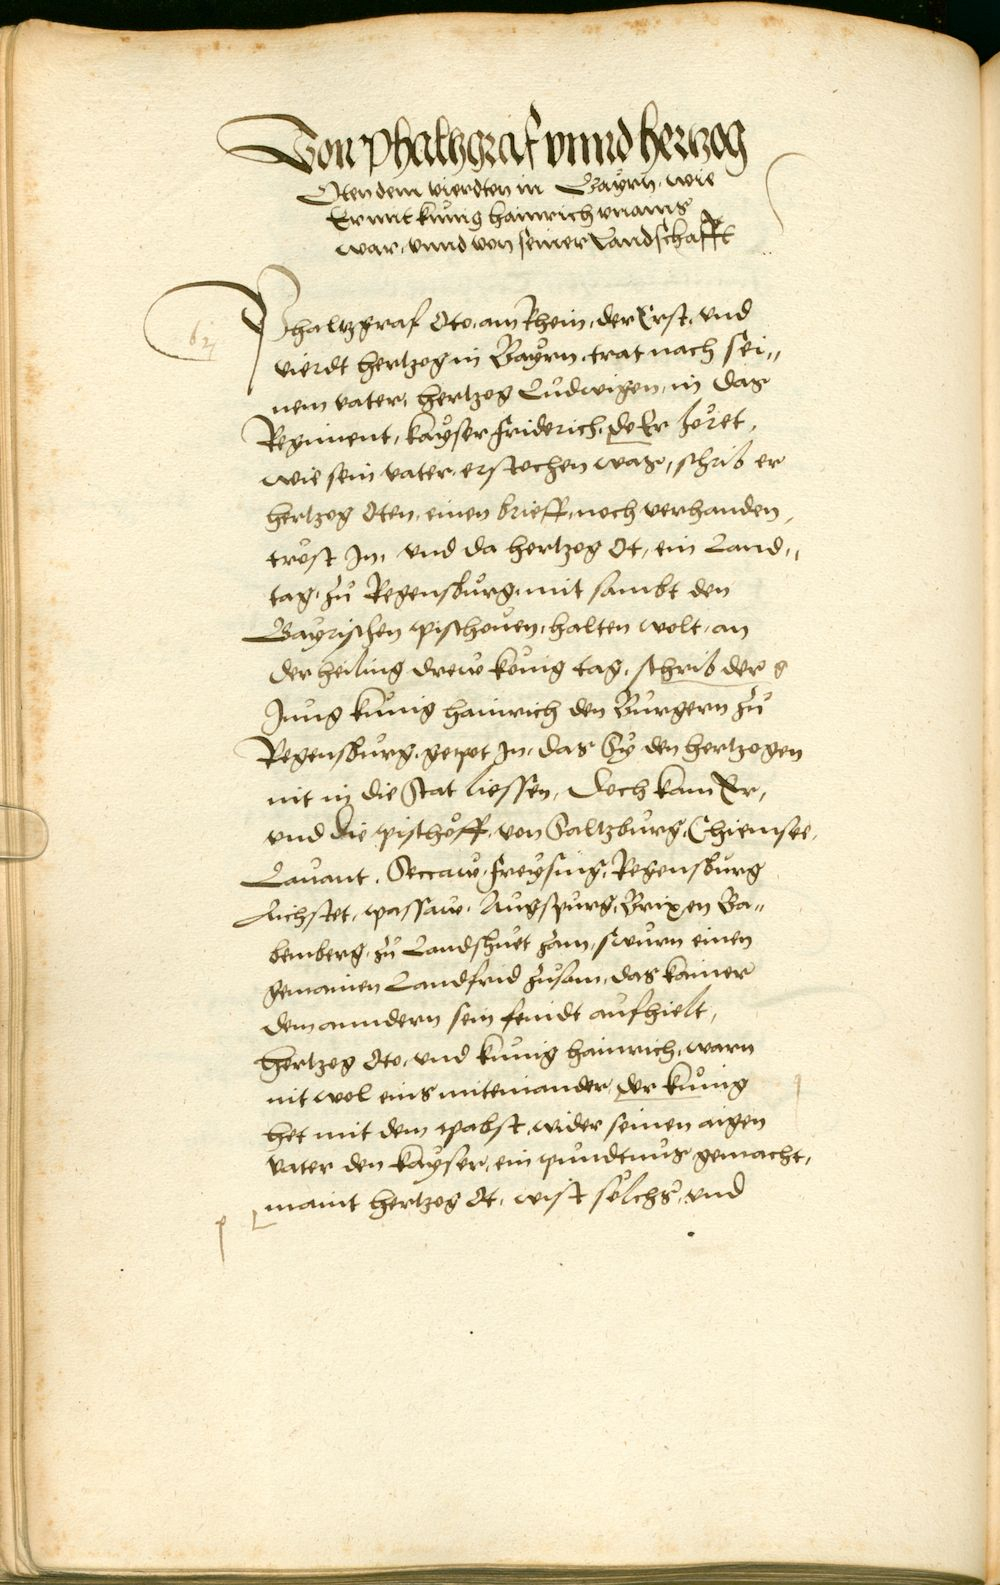 Von phaltzgraf vnnd hertzog
Oten dem vierdten in Bayrn, wie
Er mit kunig hainrich vnains
war, vnnd von seiner Landschafft
Phaltzgraf Oto, am Rhein, der Erst, vnd
vierdt hertzog in Bayrn, trat nach sei„
nem vater, hertzog Ludwigen, in das
Regiment, kayser Friderich, do Er höret,
wie sein vater, erstochen was, schrib er
hertzog Oten, einen brieff, noch verhanden,
tröst In, vnd da hertzog Ot, ein Land„
tag, zů Regensburg, mit sambt den
Bayrischen pischouen, halten wolt, an
der heiling drew konig tag, schrib der
Jung kunig hainrich den Burgern zů
Regensburg, gepot In, das Sy den hertzogen
nit in die Stat liessen, Doch kam Er,
vnd die pischöff, von Saltzburg, Chiemsee,
Lauant, Seccaw, Freysing, Regensburg
Aichstet, passaw, Augspurg, Brixen Ba„
bemberg, zů Landshuet zam, swurn einen
gemainen Landfrid zusam, das kainer
dem anndern sein feindt aufhielt,
hertzog Oto, vnd kunig hainrich, warn
nit wol eins miteinander, der kunig
het mit dem pabst, wider seinen aigen
vater den kayser, ein pundtnus gemacht,
maint hertzog Ot, wist sölchs, vnd